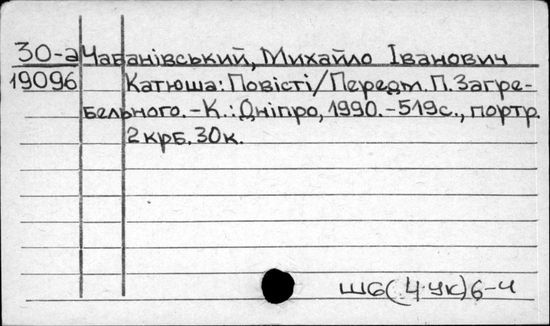 30-а Чабанівський, Михайло Іванович
19096 Катюша: Повісті/Передм. П. Загре-
бельного. - К.: Дніпро, 1990. - 519с., портр.
2 крб. 30к.
Ш6(4УК)6-4